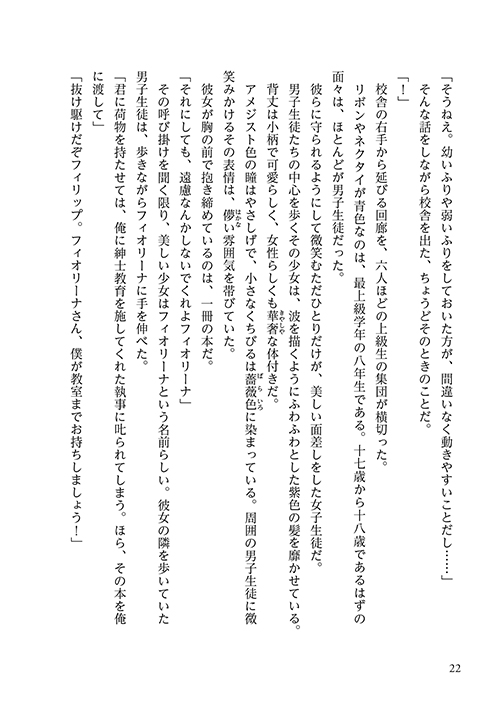 「そうねえ。幼いふりや弱いふりをしておいた方が、間違いなく動きやすいことだし……」
そんな話をしながら校舎を出た、ちょうどそのときのことだ。
「！」
校舎の右手から延びる回廊を、六人ほどの上級生の集団が横切った。
リボンやネクタイが青色なのは、最上級学年の八年生である。十七歳から十八歳であるはずの
面々は、ほとんどが男子生徒だった。
彼らに守られるようにして微笑むただひとりだけが、美しい面差しをした女子生徒だ。
男子生徒たちの中心を歩くその少女は、波を描くようにふわふわとした紫色の髪を靡かせている。
背丈は小柄で可愛らしく、女性らしくも華奢な体付きだ。
アメジスト色の瞳はやさしげで、小さなくちびるは薔薇色に染まっている。周囲の男子生徒に微
笑みかけるその表情は、儚い雰囲気を帯びていた。
彼女が胸の前で抱き締めているのは、一冊の本だ。
「それにしても、遠慮なんかしないでくれよフィオリーナ」
その呼び掛けを聞く限り、美しい少女はフィオリーナという名前らしい。彼女の隣を歩いていた
男子生徒は、歩きながらフィオリーナに手を伸べた。
「君に荷物を持たせては、俺に紳士教育を施してくれた執事に叱られてしまう。ほら、その本を俺
に渡して」
「抜け駆けだぞフィリップ。フィオリーナさん、僕が教室までお持ちしましょう！」
22